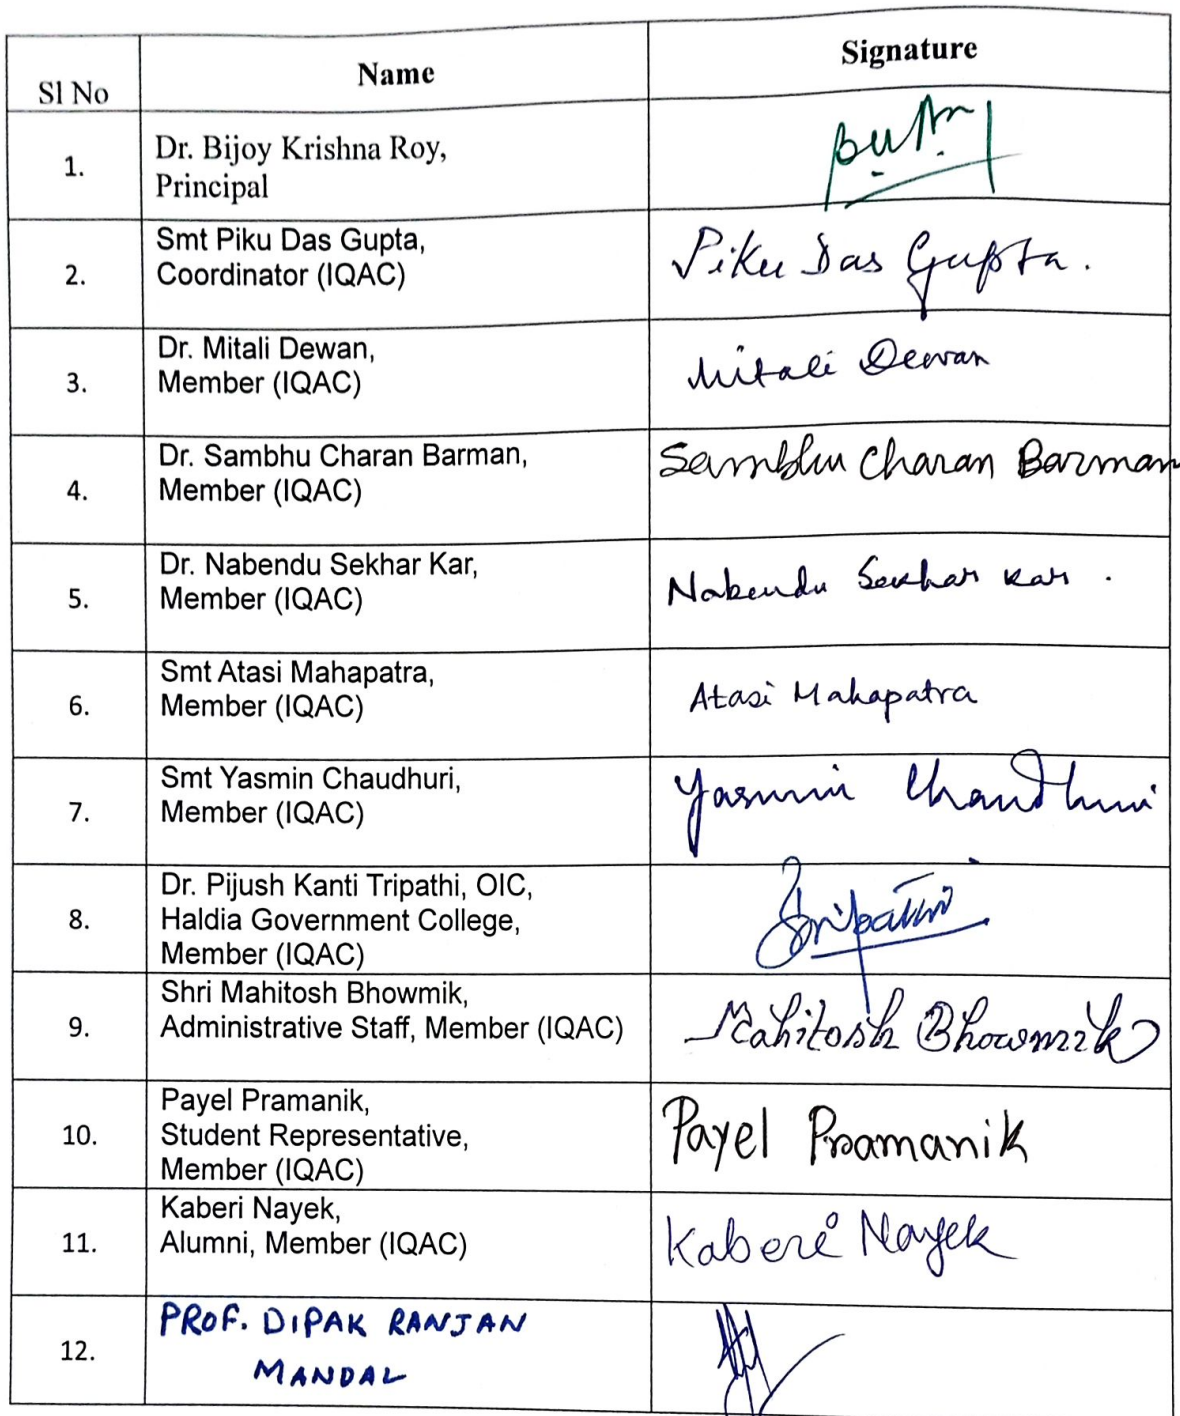 Sl No
Name
Signature
1.
Dr. Bijoy Krishna Roy,
Principal
2.
Smt Piku Das Gupta,
Coordinator (IQAC)
Piku Das Gupta.
3.
Dr. Mitali Dewan,
Member (IQAC)
Mitali Dewan
4.
Dr. Sambhu Charan Barman,
Member (IQAC)
Sambhu Charan Barman
5.
Dr. Nabendu Sekhar Kar,
Member (IQAC)
Nabendu Sekhar Kar.
6.
Smt Atasi Mahapatra,
Member (IQAC)
Atasi Mahapatra
7.
Smt Yasmin Chaudhuri,
Member (IQAC)
Yasmin Chaudhuri
8.
Dr. Pijush Kanti Tripathi, OIC,
Haldia Government College,
Member (IQAC)
9.
Shri Mahitosh Bhowmik,
Administrative Staff, Member (IQAC)
Mahitosh Bhowmik
10.
Payel Pramanik,
Student Representative,
Member (IQAC)
Payel Pramanik
11.
Kaberi Nayek,
Alumni, Member (IQAC)
Kaberi Nayek
12.
PROF. DIPAK RANJAN
MANDAL